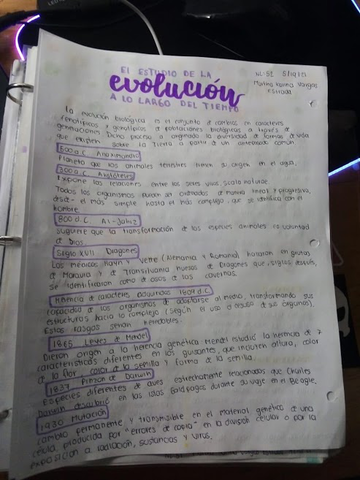 El ESTUDIO DE LA
evolución
A LO LARGO DEL TIEMPO
La evolución biológica es el conjunto de cambios en caracteres
fenotípicos y genotípicos de poblaciones biológicas a través de
generaciones. Dicho proceso ha originado la diversidad de formas de vida
que existen sobre la Tierra a partir de un antepasado común
600 a.C. Anaximandro
Planteo que los animales terrestres tienen su origen en el agua.
300 a.C. Aristóteles
Expone las relaciones entre los seres vivos, scala naturae
Todos los organismos pueden ser ordenados de manera lineal y progresiva,
desde el más simple hasta el más complejo, que se identifica con el
hombre
800 d.C. Al-Jahiz
sugiere que la transformación de los especies animales es voluntad
de Dios.
Siglo XVII Dragones
Los médicos Hayn y Vette (Alemania y Rumania) hallaron en grutas
de Moravia y de Transilvania huesos de Dragones que, siglos después,
se identificaron como de osos de las cavernas.
Herencia de caracteres adquiridos
capacidad de los organismos de adaptarse al medio, transformando sus
estructuras hacia lo complejo (según el uso o desuso de sus órganos).
Estos rasgos serían heredables.
1865 Leyes de Mendel
Dieron origen a la herencia genética Mendel estudió la herencia de 7
características diferentes en los guisantes, que incluyen altura, color
de la flor, color de la semilla y forma de la semilla.
1837 Pinzón de Darwin
Especies diferentes de aves estrechamente relacionadas que Charles
Darwin descubrió en las islas Galápagos durante su viaje en el Beagle.
1930 Mutación
Cambio permanente y transmisible en el material genético de una
célula producida por "errores de copia" en la división celular o por la
exposición a radiación, sustancias y virus.